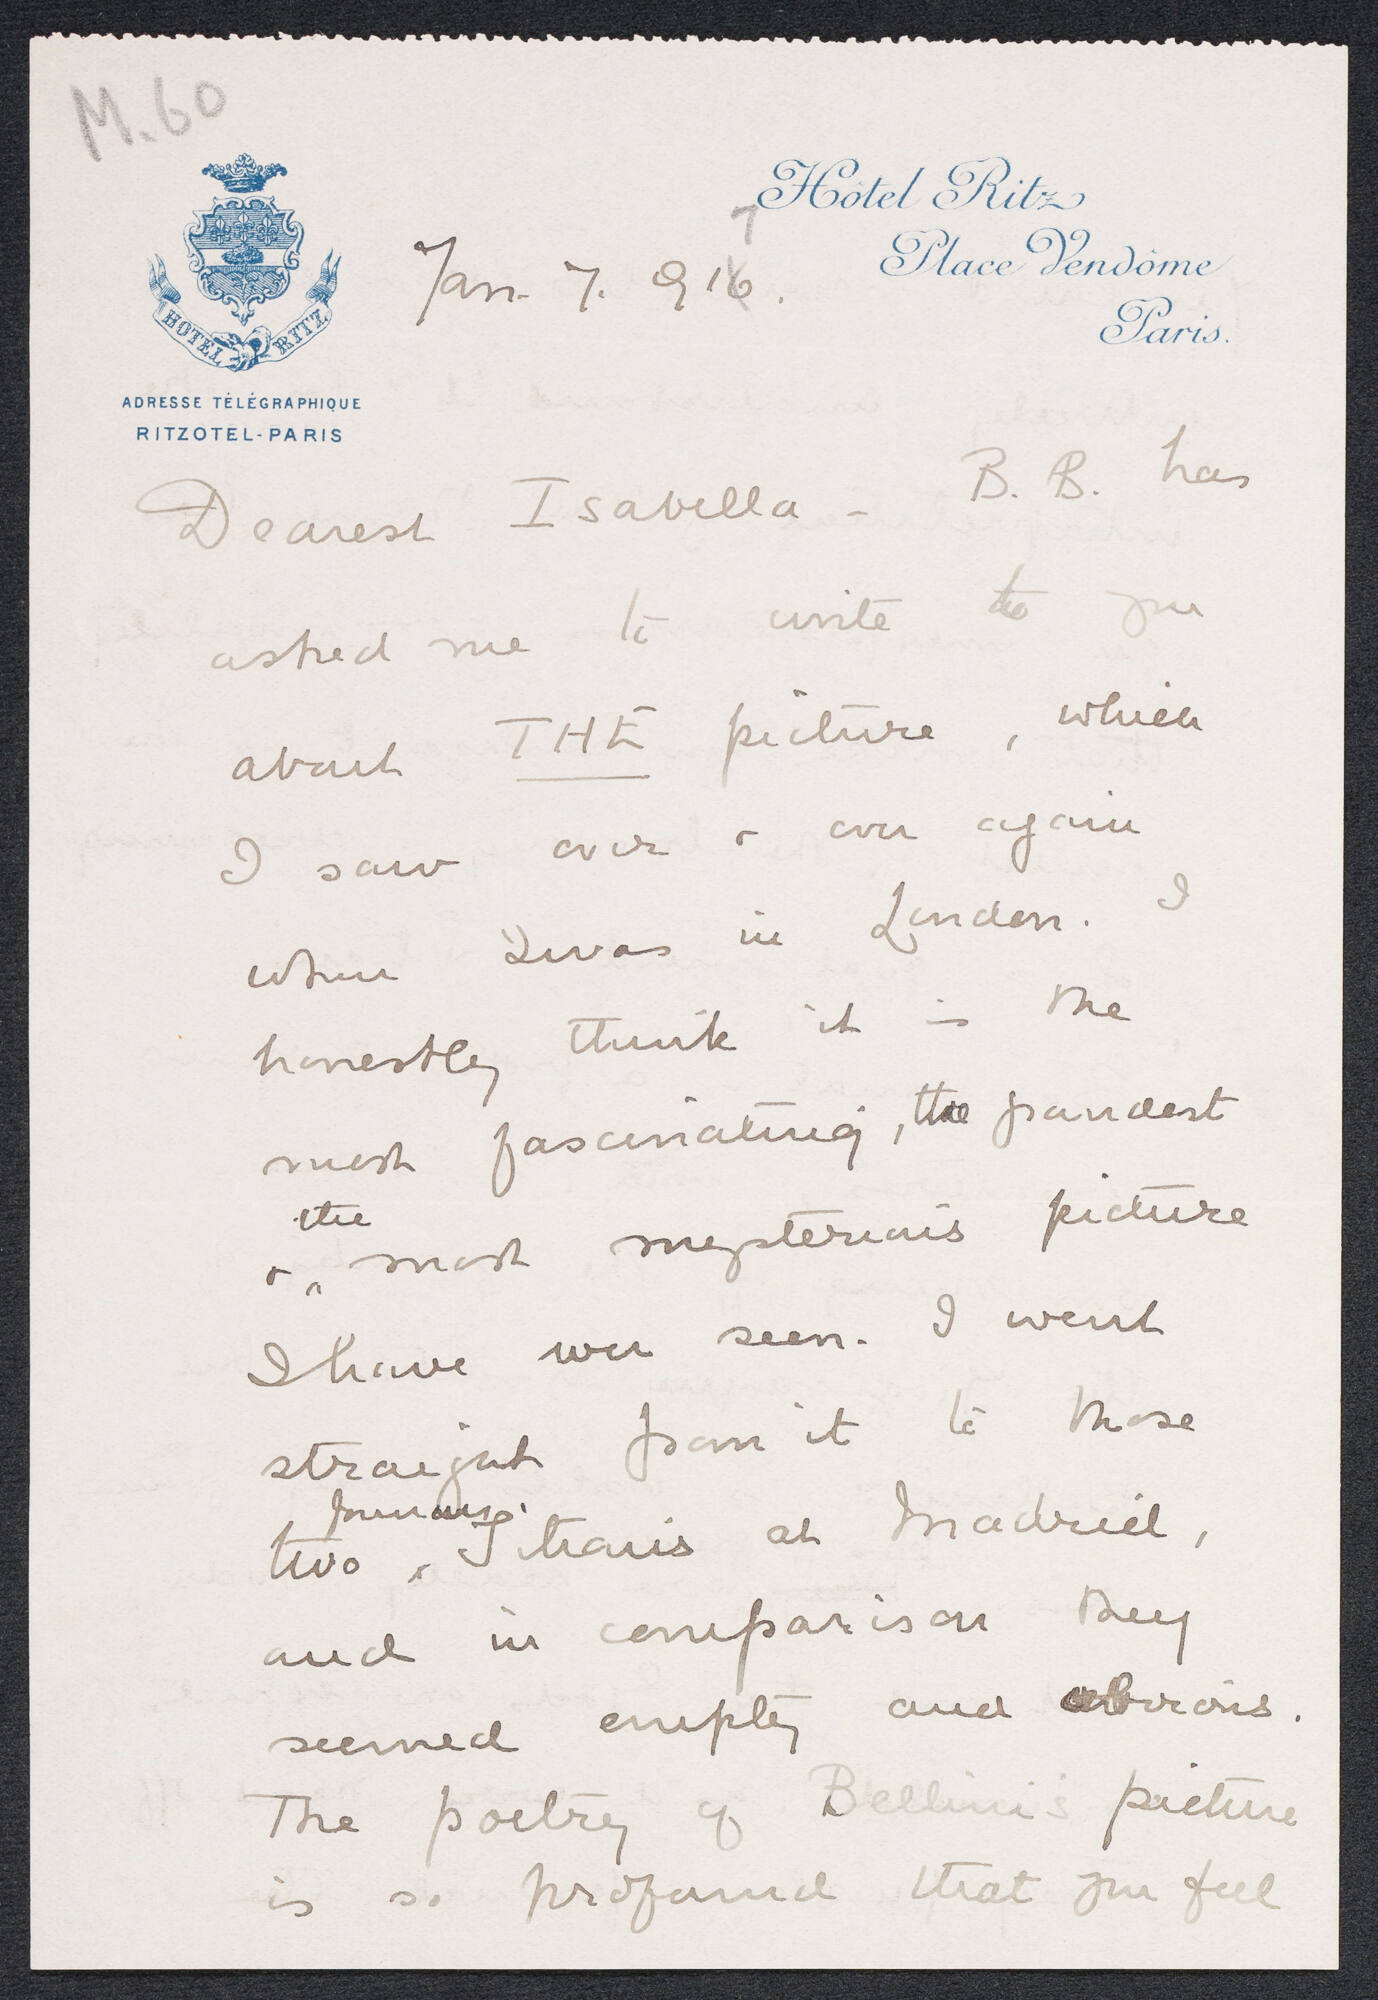 M. 60
Hôtel Ritz
Place Vendôme
Paris.
HOTEL RITZ
ADRESSE TÉLÉGRAPHIQUE
RITZOTEL-PARIS
7
Jan. 7. 916.
Dearest Isabella - B. B. has
asked me to write to you
about THE picture, which
I saw over & over again
when I was in London. I
honestly think it is the
most fascinating, the grandest
& the most mysterious picture
I have ever seen. I went
straight from it to those
two famous Titians at Madrid,
and in comparison they
seemed empty and obvious.
The poetry of Bellini's picture
is so profound that you feel